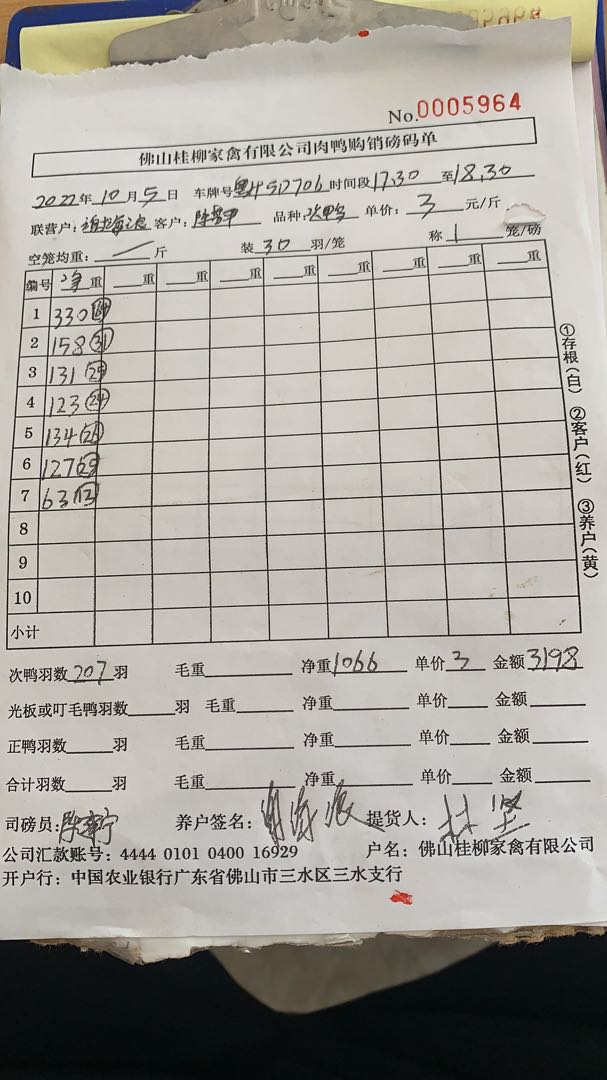 No.0005964
佛山桂柳家禽有限公司肉鸭购销磅码单
2022年10月5日 车牌号 时间段17.30至18.30
联营户: 客户: 品种:次鸭 单价:3元/斤
空笼均重:/斤 装30羽/笼 称1笼/磅
编号 净重 重 重 重 重 重 重 重
1 330
2 158 31
3 131 25
4 123 24
5 134 26
6 127 25
7 63 12
8
9
10
小计
①存根(白) ②客户(红) ③养户(黄)
次鸭羽数207羽 毛重 净重1066 单价3 金额3198
光板或叮毛鸭羽数 羽 毛重 净重 单价 金额
正鸭羽数 羽 毛重 净重 单价 金额
合计羽数 羽 毛重 净重 单价 金额
司磅员: 养户签名: 提货人:
公司汇款账号:4444 0101 0400 16929 户名:佛山桂柳家禽有限公司
开户行:中国农业银行广东省佛山市三水区三水支行